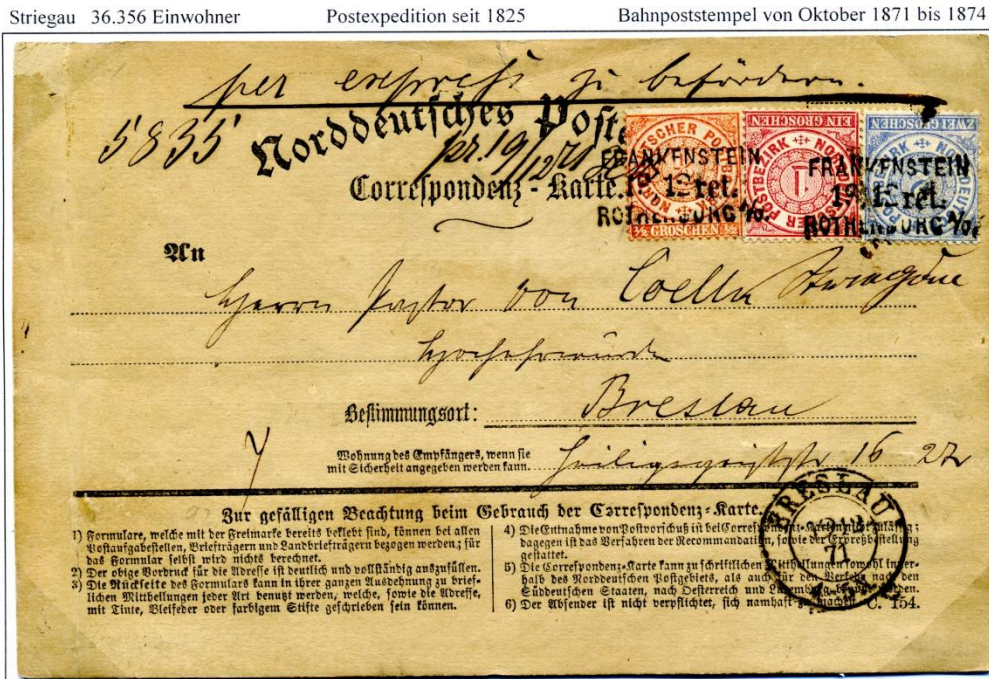 Striegau 36.356 Einwohner Postexpedition seit 1825 Bahnpoststempel von Oktober 1871 bis 1874
per express zu befördern.
5835
Norddeutsches Post
pr. 19/12 71
Correspondenz-Karte.
FRANKENSTEIN
19 12 ret.
ROTHENBURG A/O.
FRANKENSTEIN
19 12 ret.
ROTHENBURG A/O.
½ GROSCHEN ½
EIN GROSCHEN
NORDD POSTBEZIRK
1
ZWEI GROSCHEN
An
Herrn Pastor von Coelln Striegau
Hochehrwürden
Bestimmungsort: Breslau
Wohnung des Empfängers, wenn sie
mit Sicherheit angegeben werden kann. Heiligegeiststr 16
BRESLAU
71
Zur gefälligen Beachtung beim Gebrauch der Correspondenz-Karte.
1) Formulare, welche mit der Freimarke bereits beklebt sind, können bei allen
Postaufgabestellen, Briefträgern und Landbriefträgern bezogen werden; für
das Formular selbst wird nichts berechnet.
2) Der obige Vordruck für die Adresse ist deutlich und vollständig auszufüllen.
3) Die Rückseite des Formulars kann in ihrer ganzen Ausdehnung zu brief-
lichen Mittheilungen jeder Art benutzt werden, welche, sowie die Adresse,
mit Tinte, Bleifeder oder farbigem Stifte geschrieben sein können.
4) Die Entnahme von Postvorschuß ist bei Correspondenz-Karten nicht zulässig;
dagegen ist das Verfahren der Recommandation, sowie der Expreßbestellung
gestattet.
5) Die Correspondenz-Karte kann zu schriftlichen Mittheilungen sowohl inner-
halb des Norddeutschen Postgebiets, als auch für den Verkehr nach den
Süddeutschen Staaten, nach Oesterreich und Luxemburg benutzt werden.
6) Der Absender ist nicht verpflichtet, sich namhaft zu machen. C. 154.